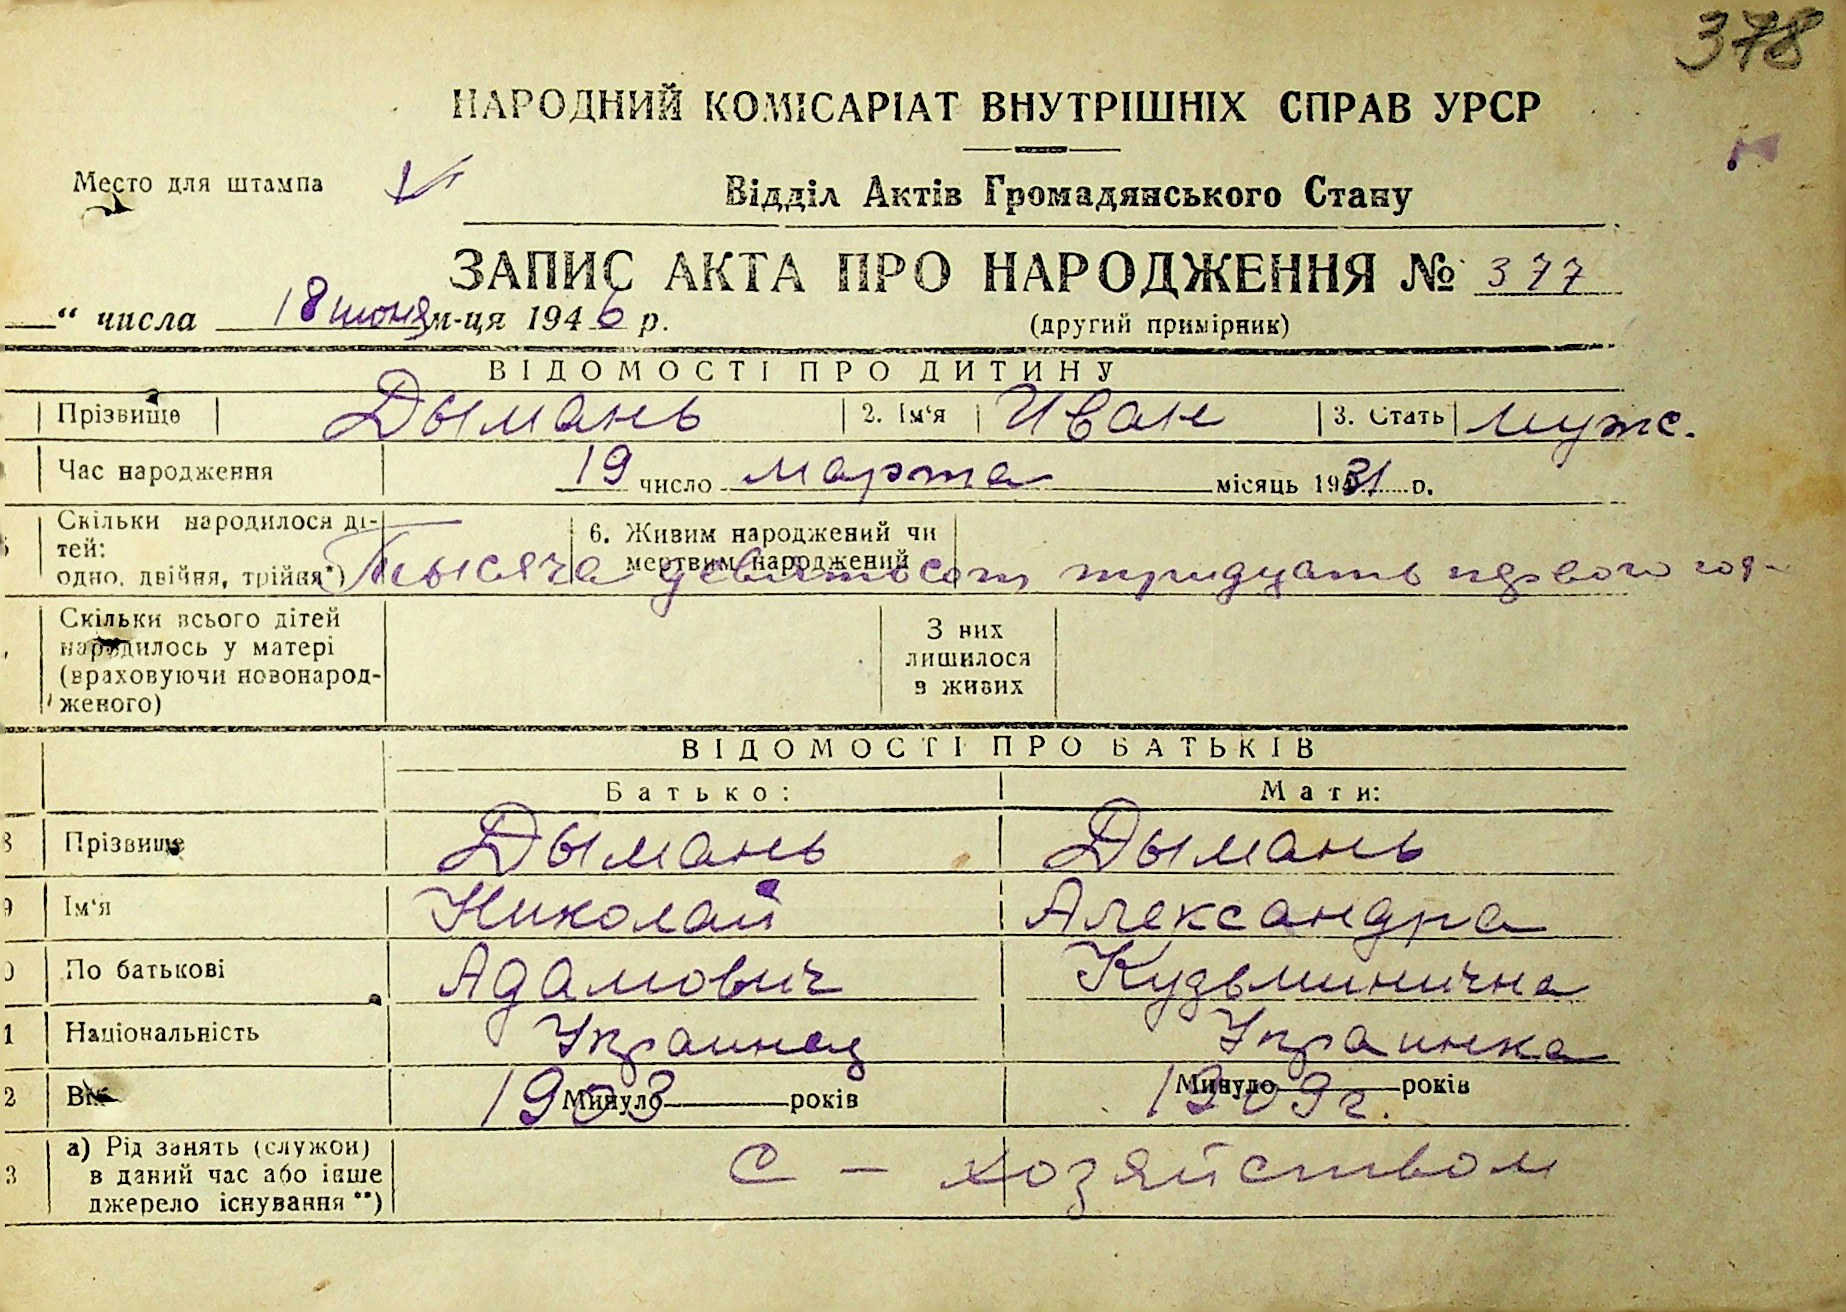 378
НАРОДНИЙ КОМІСАРІАТ ВНУТРІШНІХ СПРАВ УРСР
Место для штампа
Відділ Актів Громадянського Стану
ЗАПИС АКТА ПРО НАРОДЖЕННЯ № 377
“ числа 18 июня м-ця 1946 р.
(другий примірник)
ВІДОМОСТІ ПРО ДИТИНУ
Прізвище Дымань 2. Ім‘я Иван 3. Стать муж.
Час народження 19 число марта місяць 1931 р.
Скільки народилося ді-
тей:
одно, двійня, трійня*)
6. Живим народжений чи
мертвим народжений
Тысяча девятьсот тридцать первого год
Скільки всього дітей
народилось у матері
(враховуючи новонарод-
женого)
З них
лишилося
в живих
ВІДОМОСТІ ПРО БАТЬКІВ
Батько: Мати:
8 Прізвище Дымань Дымань
9 Ім‘я Николай Александра
0 По батькові Адамович Кузьминична
1 Національність Украинец Украинка
2 Вік 1903 Минуло років 1909 г. Минуло років
3 а) Рід занять (служби)
в даний час або інше
джерело існування **)
С - хозяйством